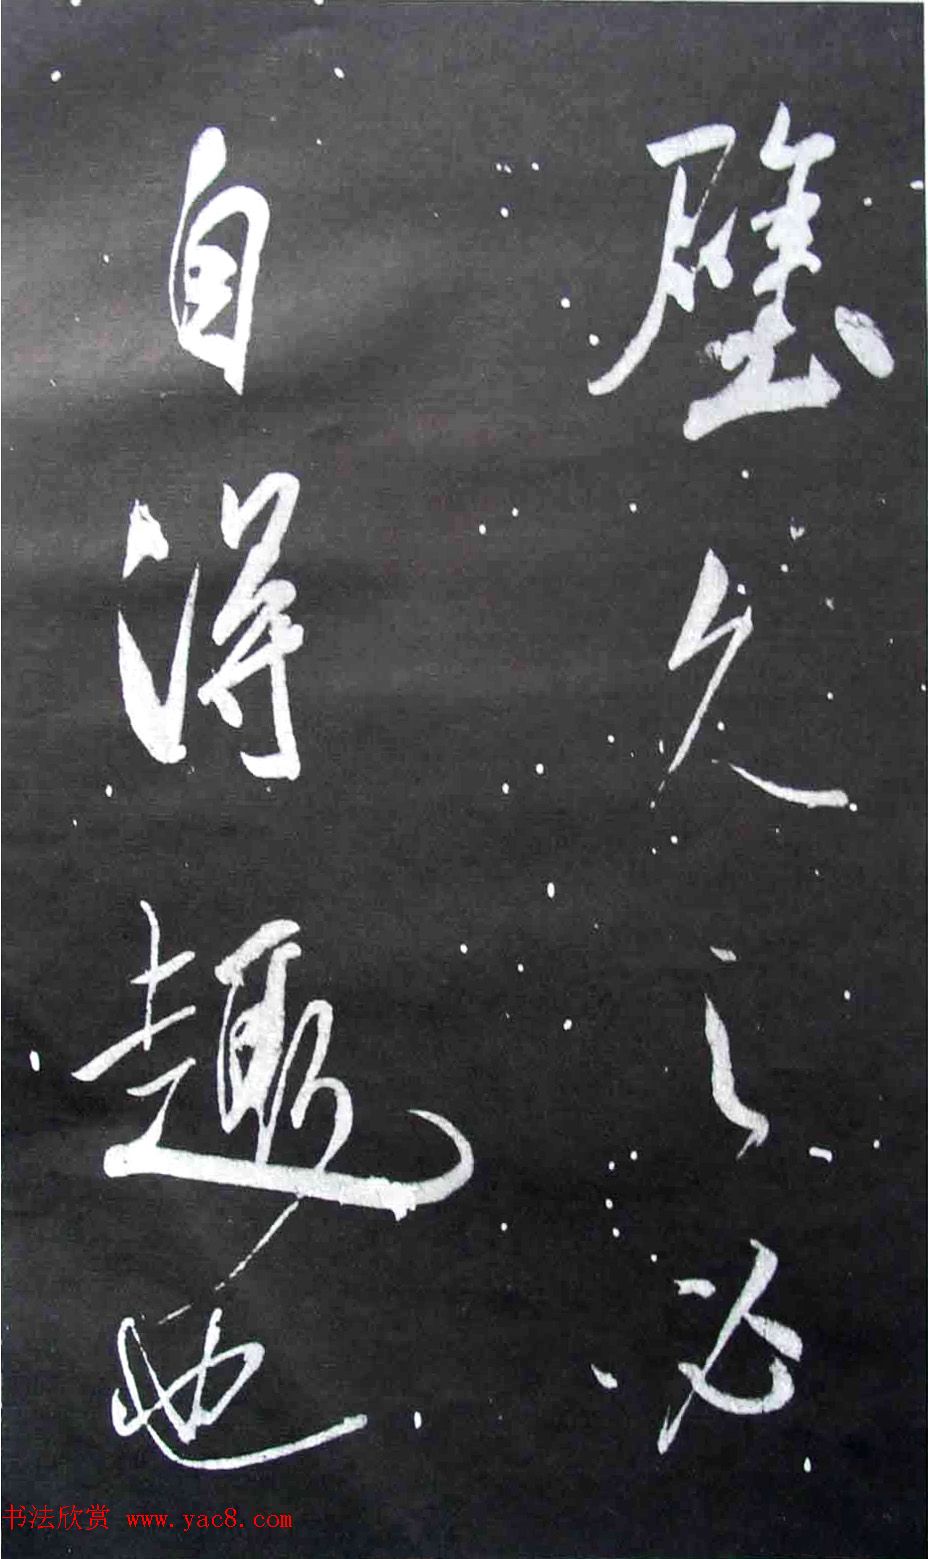 壁久之必
自得趣也
书法欣赏 www.yac8.com